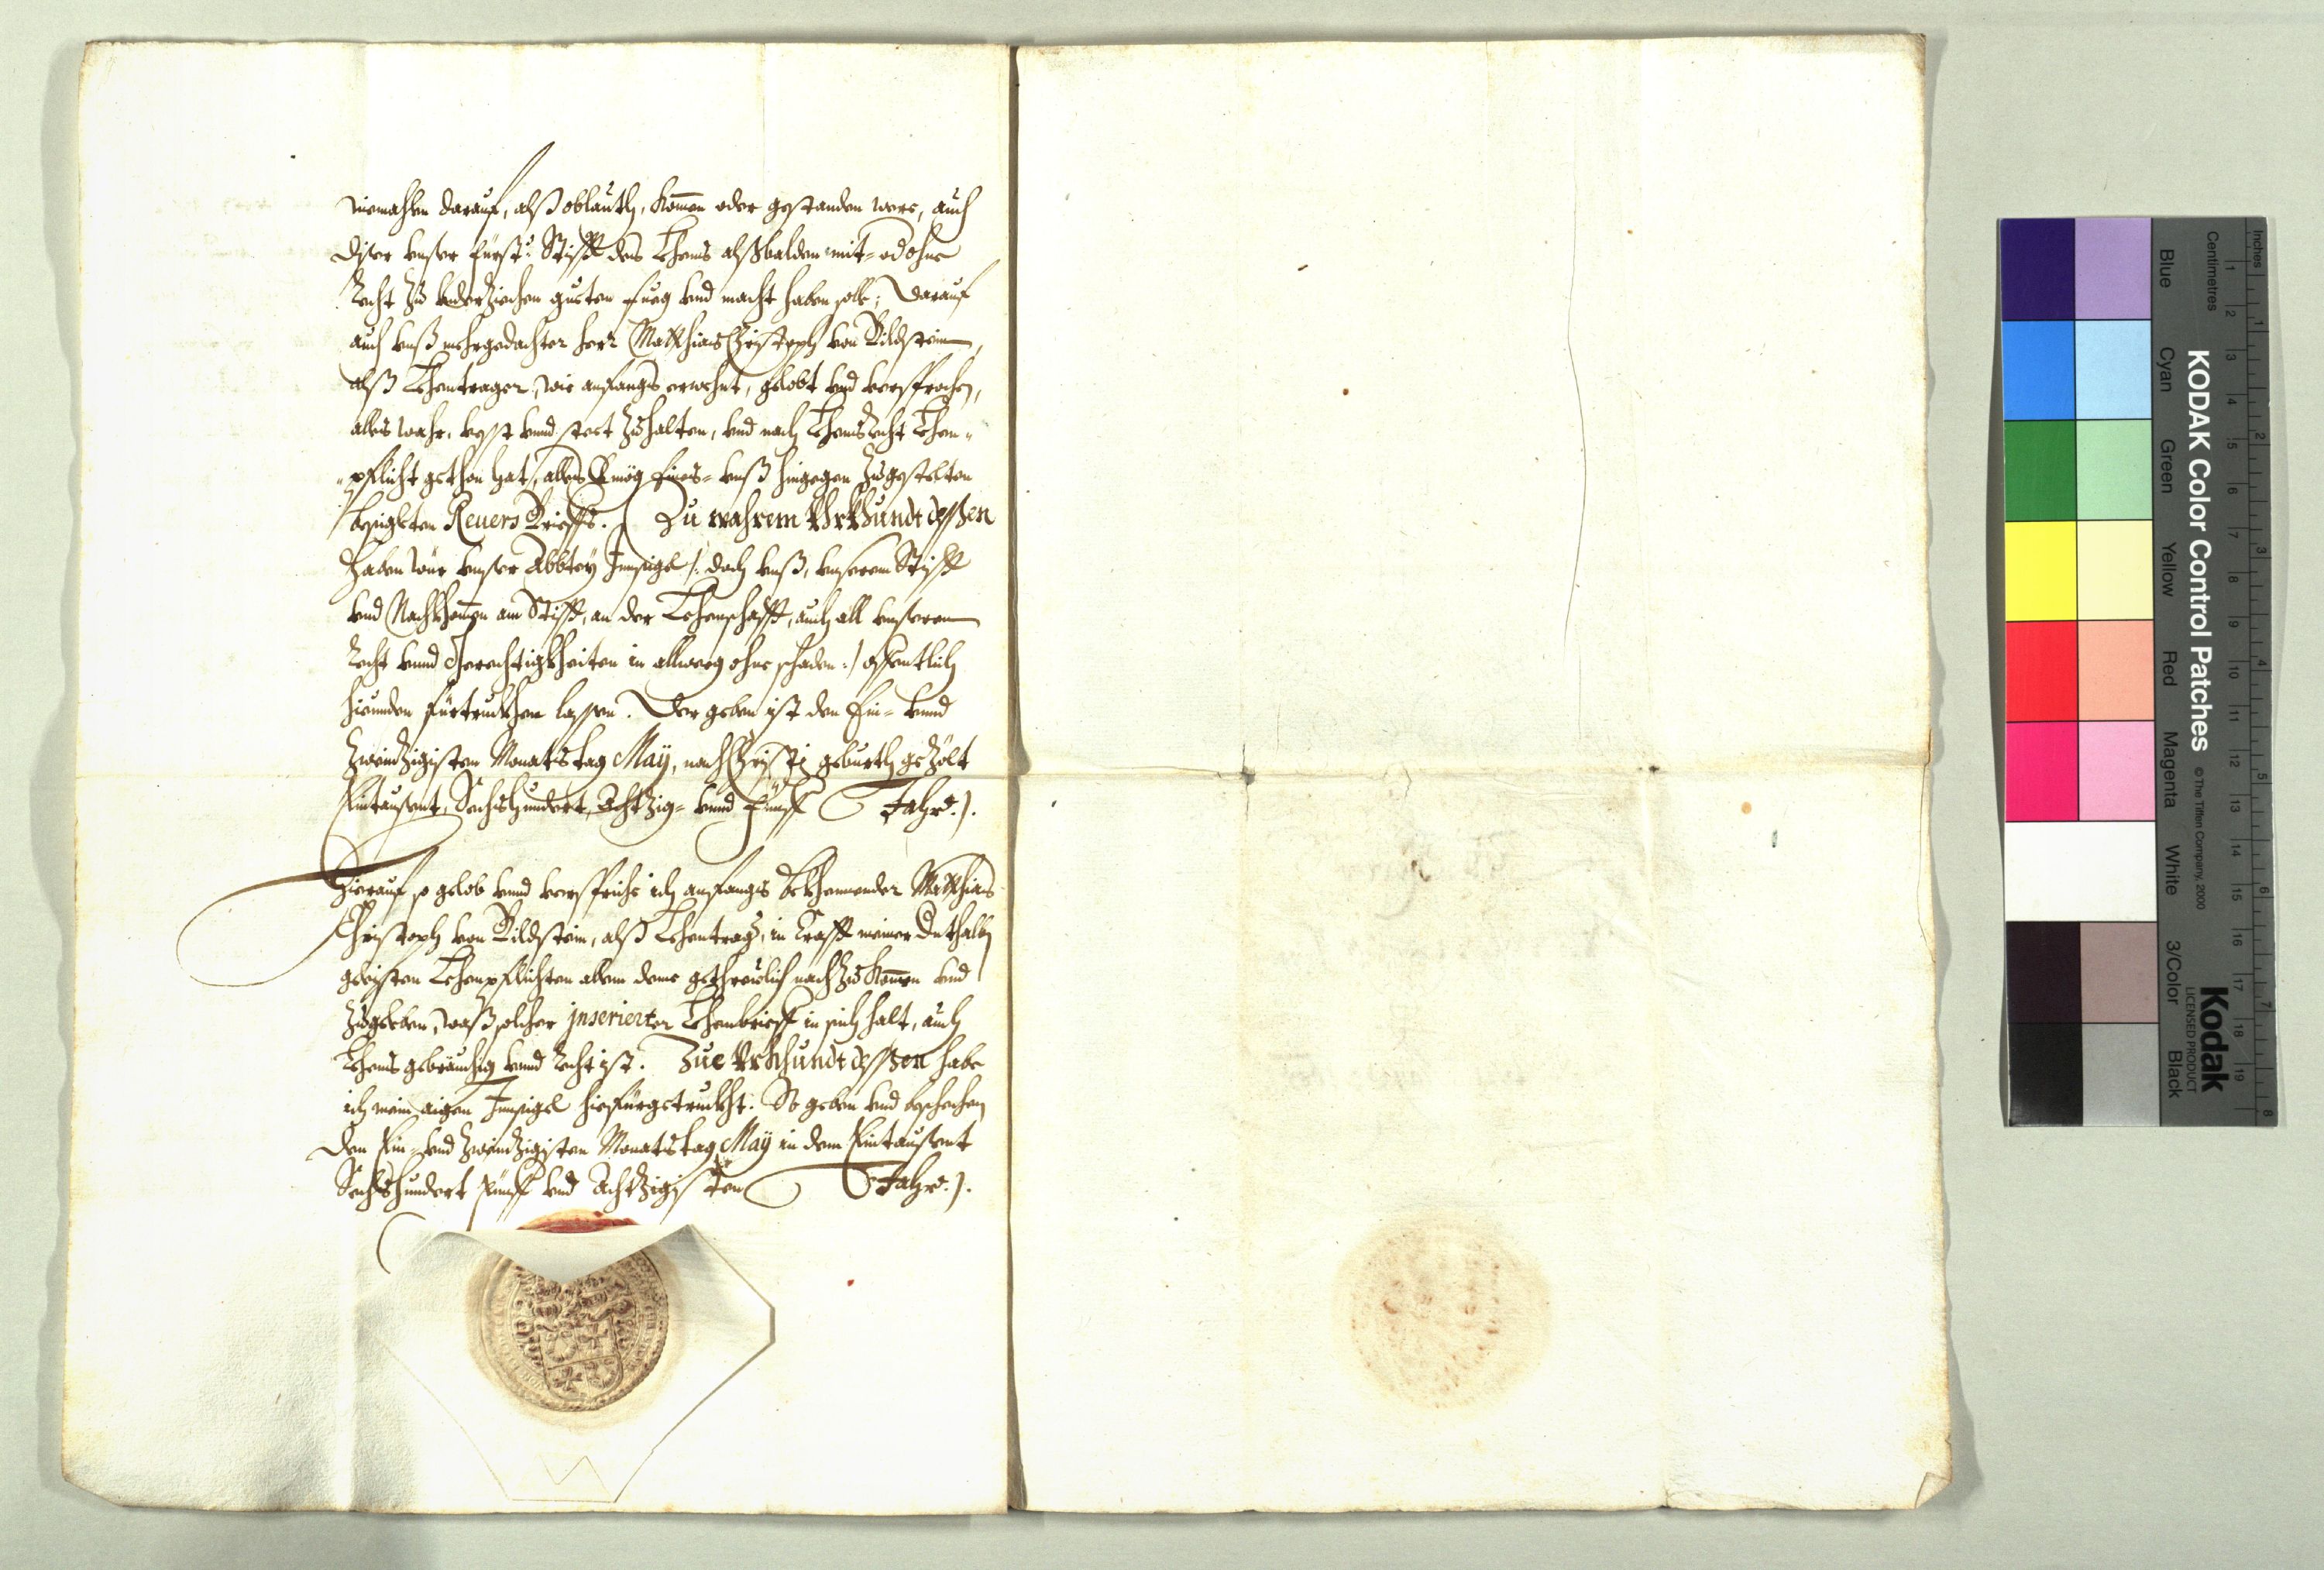 niemahlen darauf, alß oblauth, kom̄en oder gestanden were, auch
diser unser fürstl: Stifft des Lehens alßbalden mit- od ohne
Recht zu underziechen guoten fueg und macht haben solle; darauf
auch unß mehrgedachter herr Matthias Christoph von Bildstein,
alß Lehentrager, wie anfangs erwehnt, gelobt und versprochen,
alles wahr, vesst unnd stett zu halten, und nach Lehensrecht Lehen-
pflicht gethon hat, alles Vermög Eines- unß hingegen zugestelten
besigleten Reuers Brieffs. Zu wahrem Vrkhundt dessen
Haben Wür unser Abbtey Innsigl /: doch unß, unserem Stifft
und Nachkhom̄en am Stifft, an der Lehenschafft, auch all unseren
Recht unnd Gerechtigkheiten in allweeg ohne schaden :/ offentlich
hieunden fürtruckhen lassen. Der geben ist den Ein- unnd
Zweinzigisten Monats tag Maÿ, nach Christi geburth gezölt
Eintausent, Sechshundert, Achtzig- unnd Fünff Jahr ./.
Hierauf so gelob unnd versprich ich anfangs bekhennender Matthias
Christoph von Bildstein, alß Lehentrager, in Krafft meiner Dethalben
gleisten Lehenpflichten allem deme gethreulich nachzukom̄en und
zugeleben, waß solcher inserierter Lehenbrieff in sich halt, auch
Lehens gebräuchig unnd Recht ist. Zue Vrkhundt dessen habe
ich mein aigen Innsigel hiefürgetruckht. So geben und beschechen
den Ein- und Zweinzigisten Monats tag Maÿ in dem Eintausent
Sechshundert fünff und Achtzigisten Jahr ./.
KODAK Color Control Patches
© The Tiffen Company, 2000
Kodak
LICENSED PRODUCT
Inches
Centimetres
Blue
Cyan
Green
Yellow
Red
Magenta
White
3/Color
Black
1 2 3 4 5 6 7 8 9 10 11 12 13 14 15 16 17 18 19
1 2 3 4 5 6 7 8